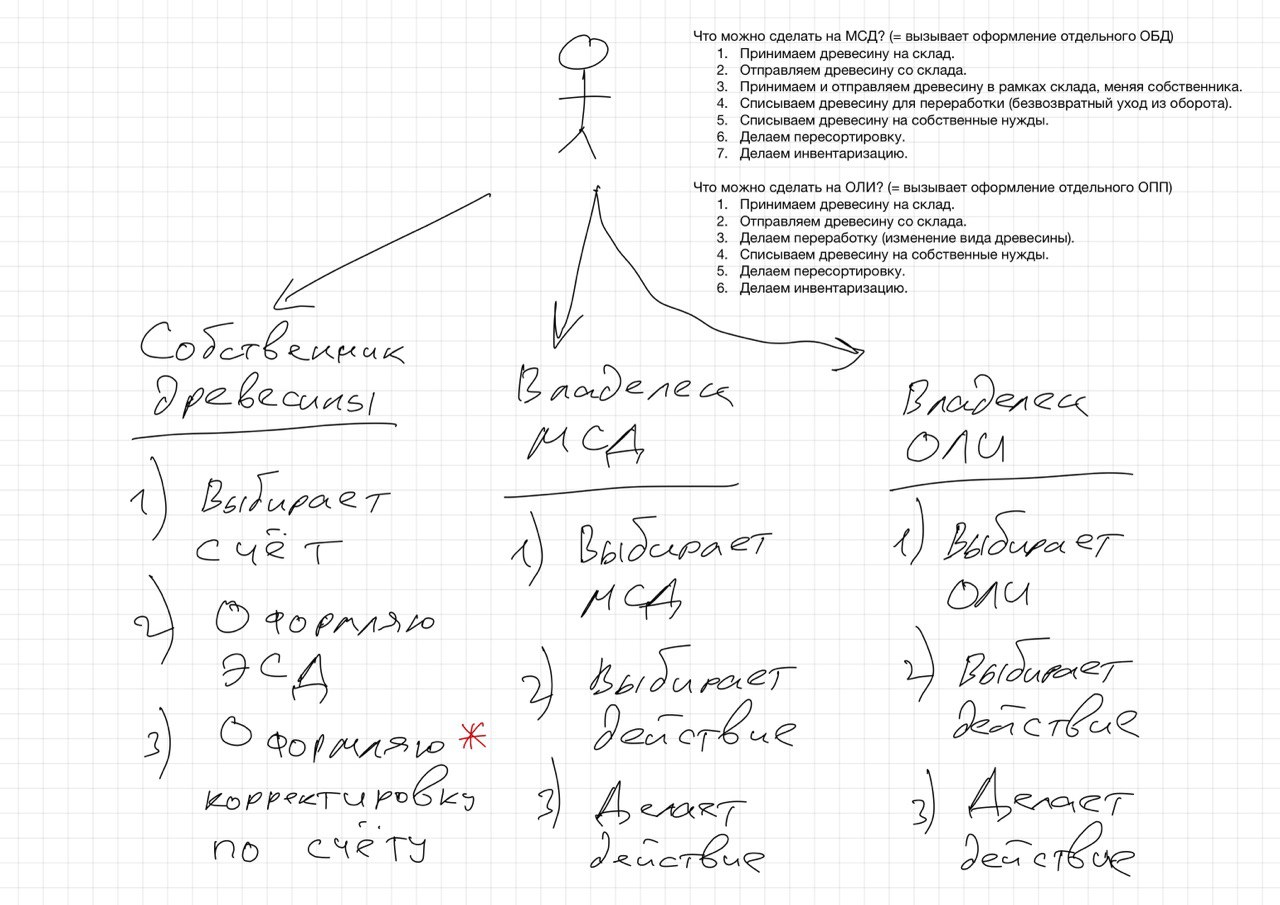 Что можно сделать на МСД? (= вызывает оформление отдельного ОБД)
1. Принимаем древесину на склад.
2. Отправляем древесину со склада.
3. Принимаем и отправляем древесину в рамках склада, меняя собственника.
4. Списываем древесину для переработки (безвозвратный уход из оборота).
5. Списываем древесину на собственные нужды.
6. Делаем пересортировку.
7. Делаем инвентаризацию.
Что можно сделать на ОЛИ? (= вызывает оформление отдельного ОПП)
1. Принимаем древесину на склад.
2. Отправляем древесину со склада.
3. Делаем переработку (изменение вида древесины).
4. Списываем древесину на собственные нужды.
5. Делаем пересортировку.
6. Делаем инвентаризацию.
Собственник
древесины
1) Выбирает
счёт
2) Оформляю
ЭСД
3) Оформляю *
корректировку
по счёту
Владелец
МСД
1) Выбирает
МСД
2) Выбирает
действие
3) Делает
действие
Владелец
ОЛИ
1) Выбирает
ОЛИ
2) Выбирает
действие
3) Делает
действие